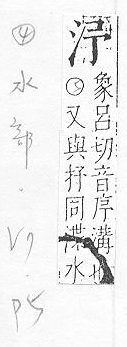 汿
象呂切音序溝也
又與抒同渫水
④水部.V7.P5